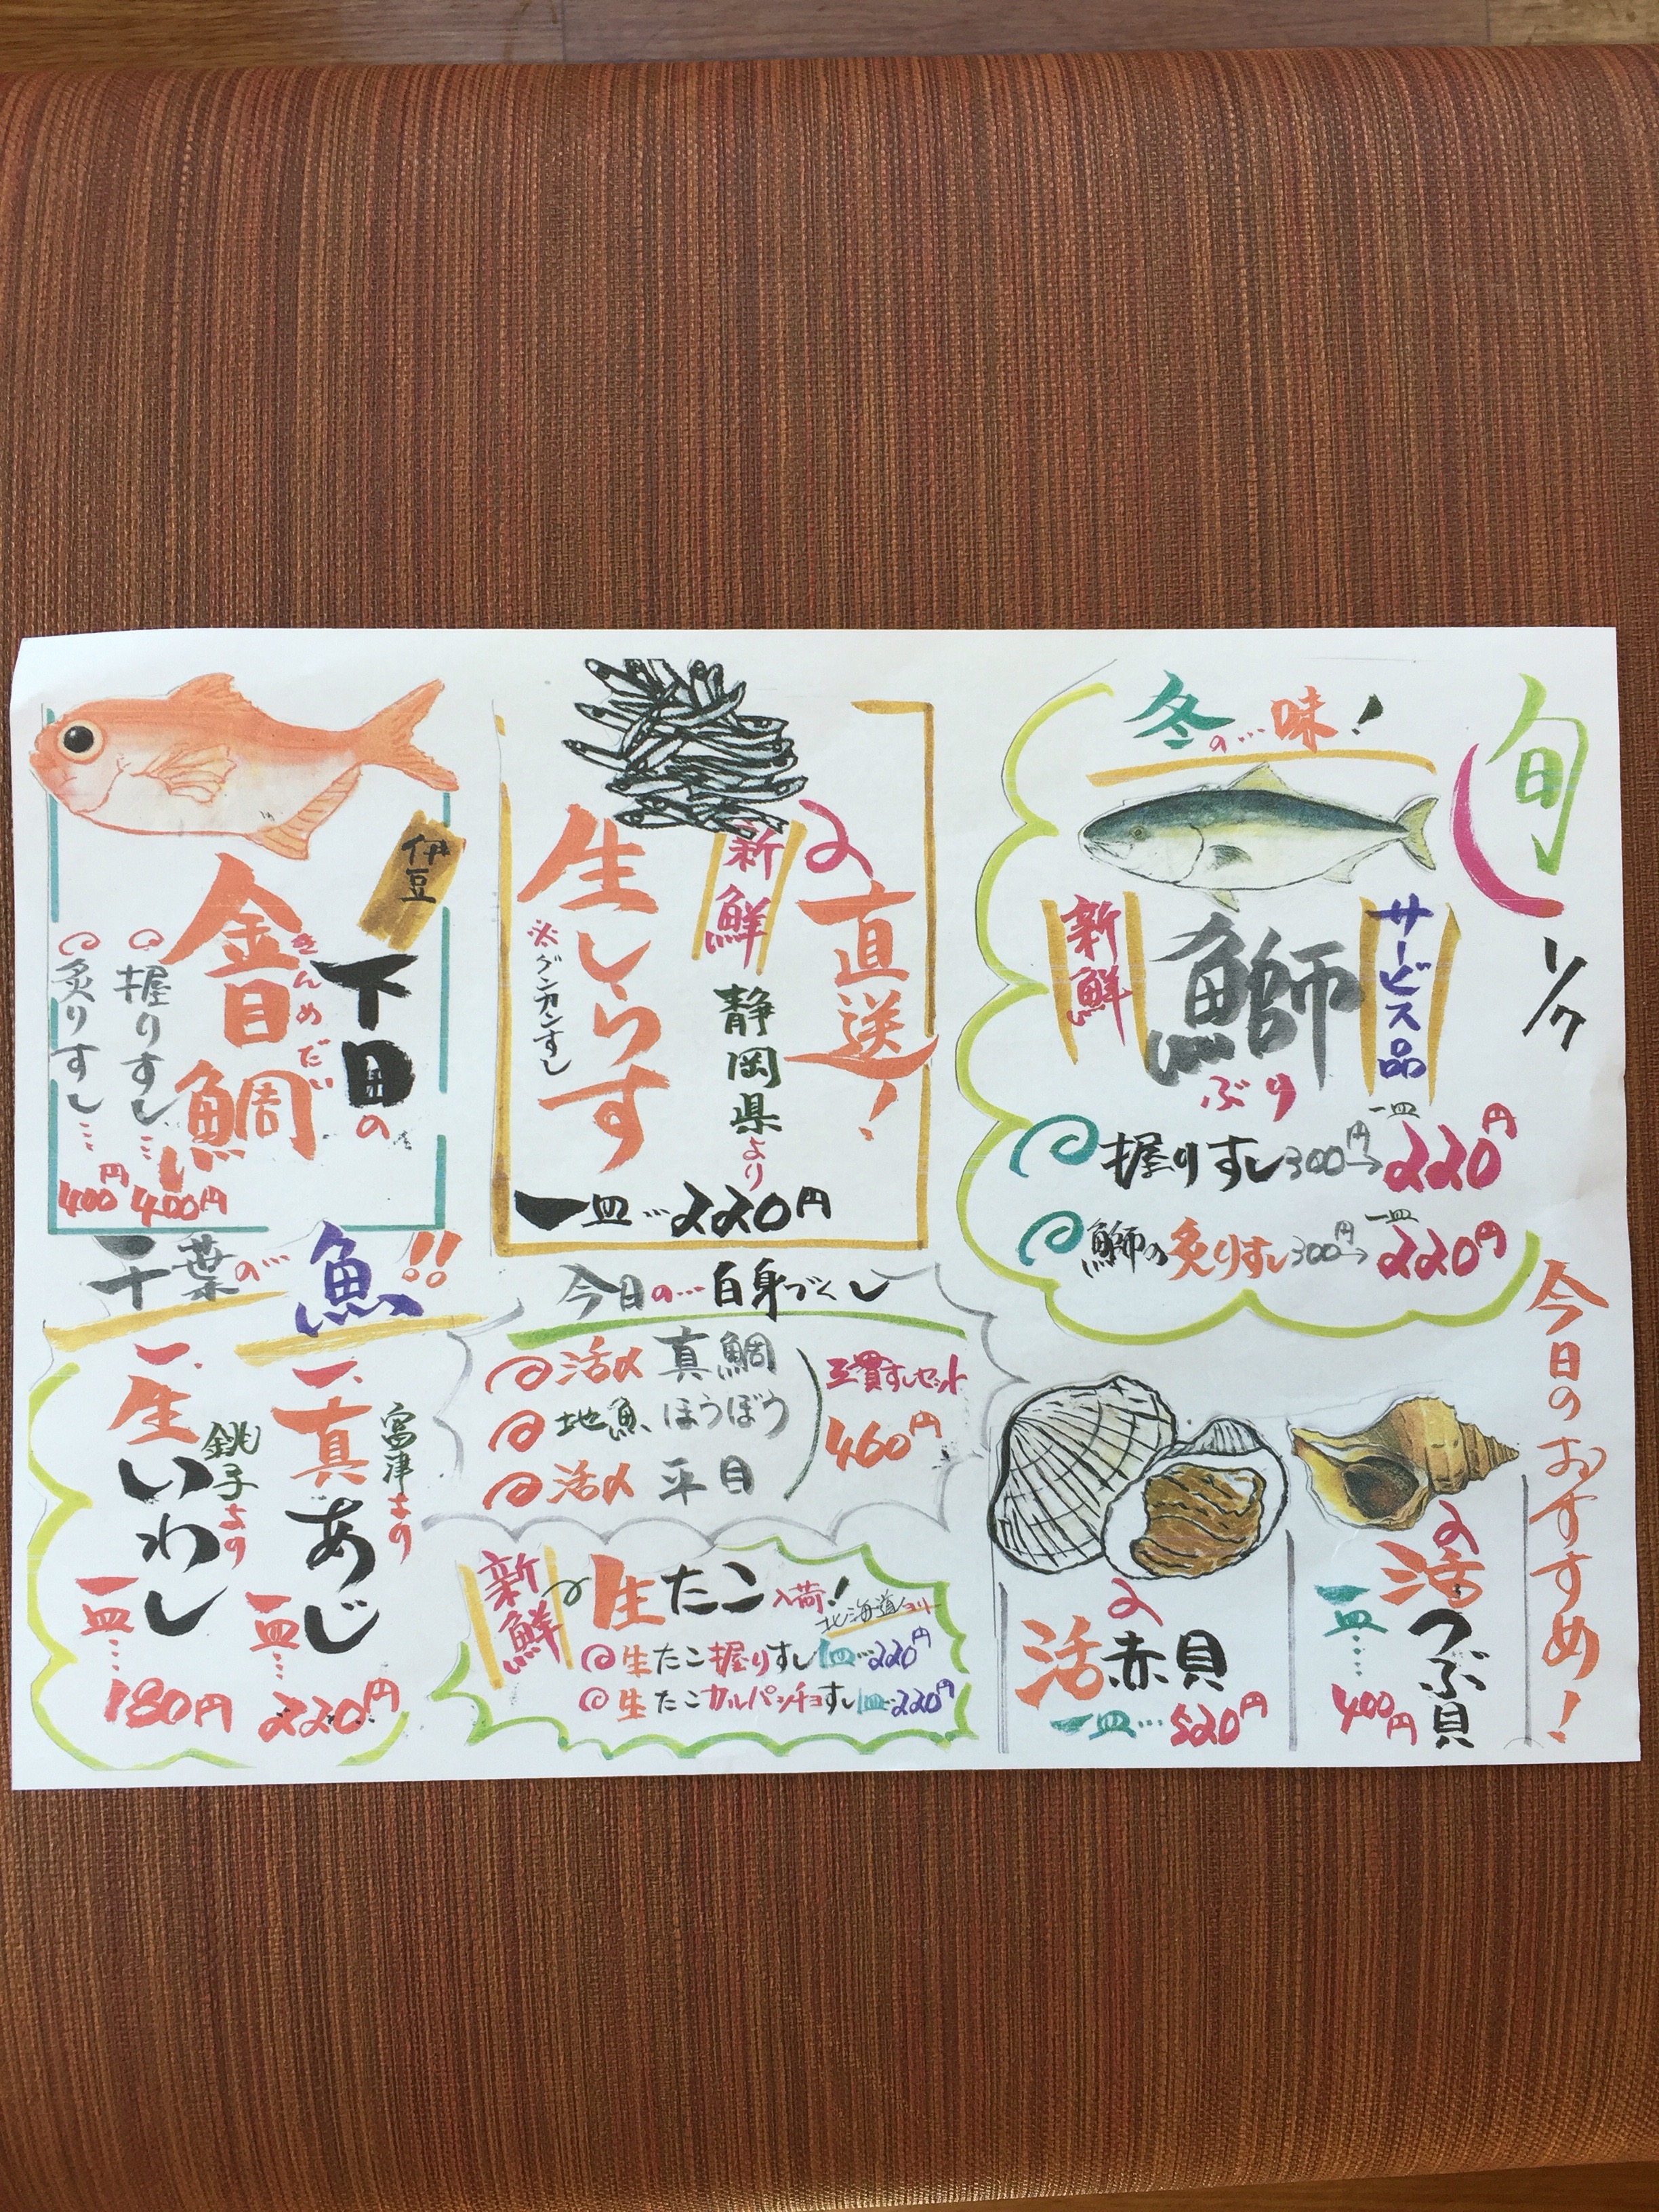 旬
1/7
今日のおすすめ！
冬の…味！
サービス品
新鮮
鰤
ぶり
握りすし300円→一皿220円
鰤の炙りすし300円→一皿220円
活つぶ貝
一皿…400円
活赤貝
一皿…520円
直送！
新鮮
静岡県より
生しらす
※グンカンすし
一皿…220円
今日の…白身づくし
活〆 真鯛
地魚 ほうぼう
活〆 平目
三貫すしセット
460円
新鮮
生たこ入荷！
北海道より
生たこ握りすし一皿…220円
生たこカルパッチョすし一皿…220円
伊豆
下田の
金目鯛
きんめだい
握りすし…400円
炙りすし…400円
千葉の…魚!!
富津より
一、真あじ
一皿…220円
銚子より
一、生いわし
一皿…180円